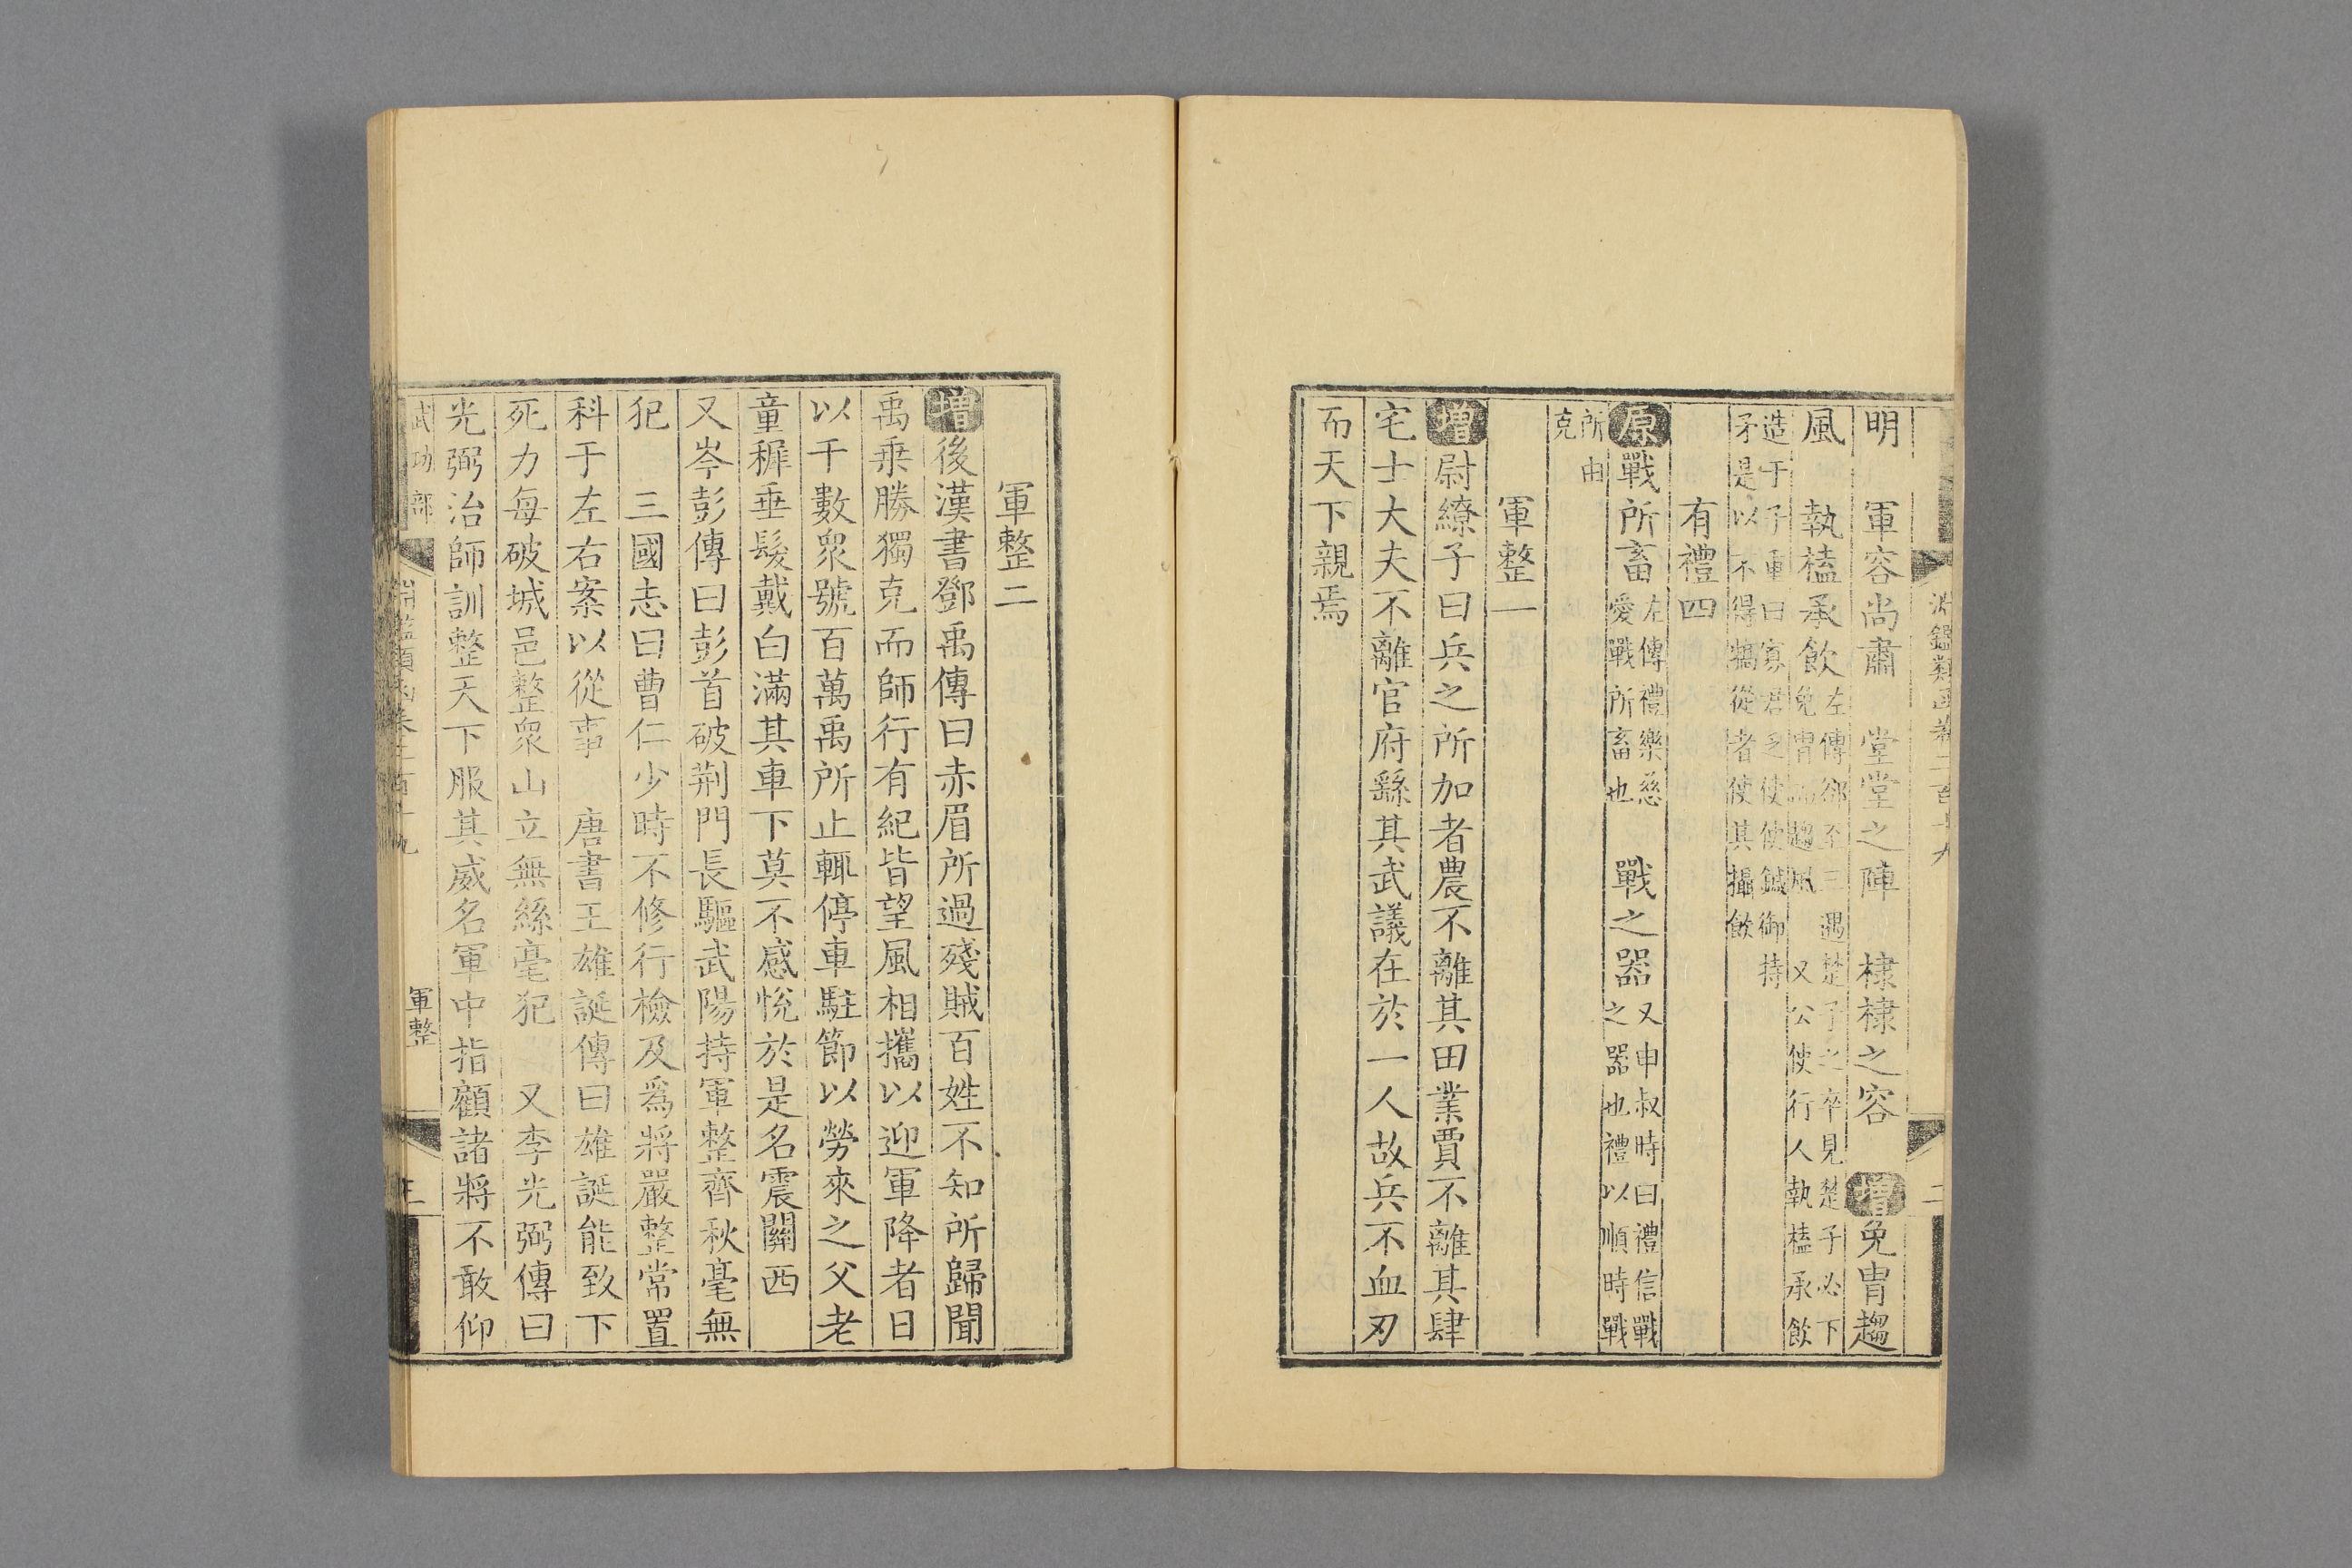 明 軍容尚肅 堂堂之陣 棣棣之容 增免胄趨
風 執榼承飲左傳郤至三遇楚子之卒見楚子必下
免胄而趨風 又公使行人執榼承飲
造于子重曰寡君乏使使鍼御持
矛是以不得犒從者使某攝飲
有禮四
原戰所畜左傳禮樂慈
愛戰所畜也 戰之器又申叔時曰禮信戰
之器也禮以順時戰
所由
克
軍整一
增尉繚子曰兵之所加者農不離其田業賈不離其肆
宅士大夫不離官府繇其武議在於一人故兵不血刃
而天下親焉
軍整二
增後漢書鄧禹傳曰赤眉所過殘賊百姓不知所歸聞
禹乗勝獨克而師行有紀皆望風相攜以迎軍降者日
以千數衆號百萬禹所止輒停車駐節以勞來之父老
童穉垂髮戴白滿其車下莫不感悅於是名震關西
又岑彭傳曰彭首破荆門長驅武陽持軍整齊秋毫無
犯 三國志曰曹仁少時不修行檢及爲將嚴整常置
科于左右案以從事 唐書王雄誕傳曰雄誕能致下
死力每破城邑整衆山立無絲毫犯 又李光弼傳曰
光弼治師訓整天下服其威名軍中指顧諸將不敢仰
武功部 軍整